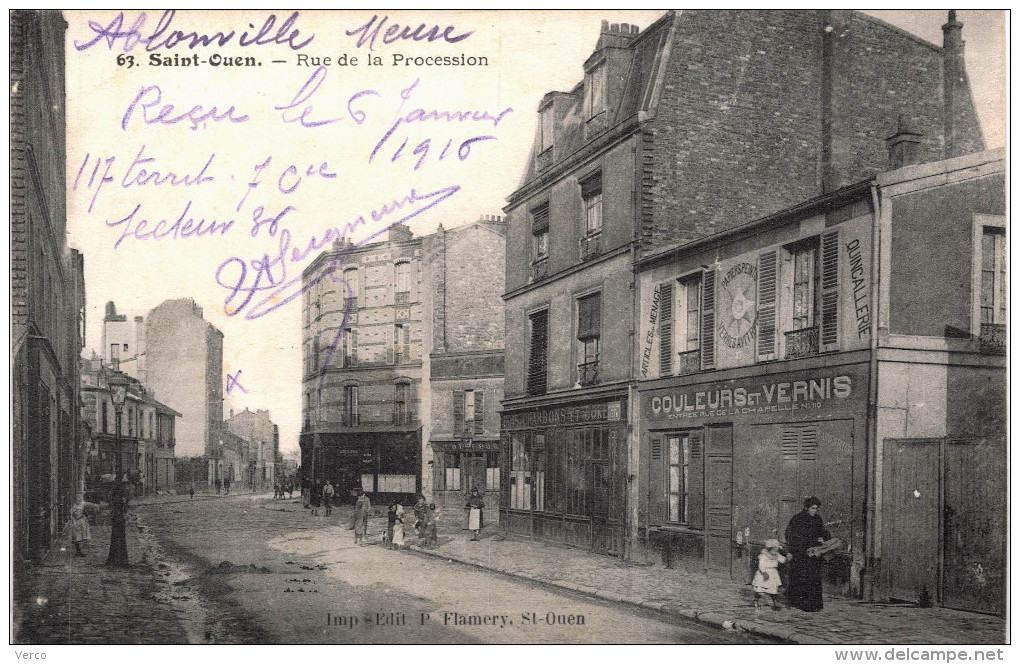 Ablonville Meuse
63. Saint-Ouen. — Rue de la Procession
Reçu le 6 Janvier
1916
117 territ. 7 Cie
Secteur 36
PAPIERS PEINTS
QUINCALLERIE
ARTICLES DE MENAGE
COULEURS ET VERNIS
ENTREE RUE DE LA CHAPELLE No 110
CHARBONS ET
Imp-Edit P. Flamery, St-Ouen
Verco
www.delcampe.net